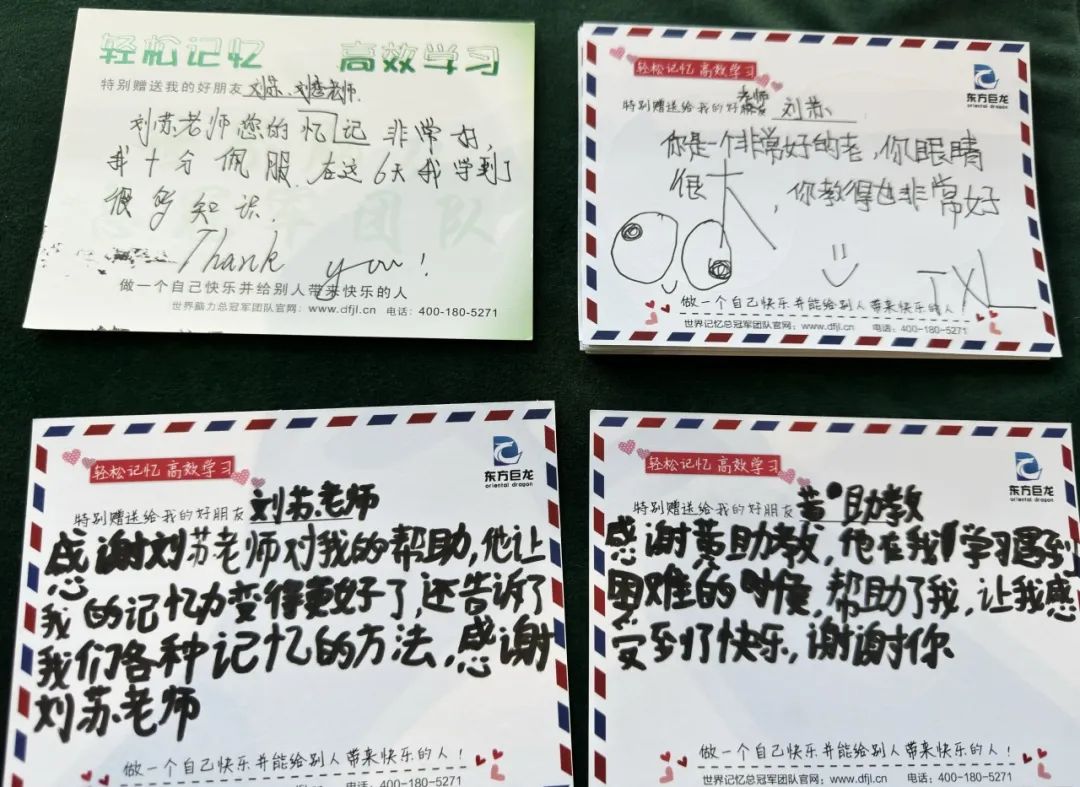 轻松记忆 高效学习
特别赠送我的好朋友 刘苏、刘 老师
刘苏老师您的 忆记 非常好,
我十分佩服 在这6天我学到了
很多知识.
军团队
Thank you!
做一个自己快乐并给别人带来快乐的人
世界脑力总冠军团队官网:www.dfjl.cn 电话:400-180-5271
轻松记忆 高效学习
东方巨龙
oriental dragon
特别赠送给我的好 老师 刘苏
你是一个非常好的老,你眼睛
很大,你教得也非常好
TXL
做一个自己快乐并能给别人带来快乐的人!
世界记忆总冠军团队官网:www.dfjl.cn 电话:400-180-5271
轻松记忆 高效学习
东方巨龙
oriental dragon
特别赠送给我的好朋友 刘苏老师
感谢刘苏老师对我的帮助,他让
我的记忆力变得更好了,还告诉了
我们各种记忆的方法,感谢
刘苏老师
做一个自己快乐并能给别人带来快乐的人!
世界记忆总冠军团队官网:www.dfjl.cn 电话:400-180-5271
轻松记忆 高效学习
东方巨龙
oriental dragon
特别赠送给我的好朋友 黄 助教
感谢黄助教,他在我学习遇到
困难的时候,帮助了我,让我感
受到了快乐,谢谢你
做一个自己快乐并能给别人带来快乐的人!
世界记忆总冠军团队官网:www.dfjl.cn 电话:400-180-5271